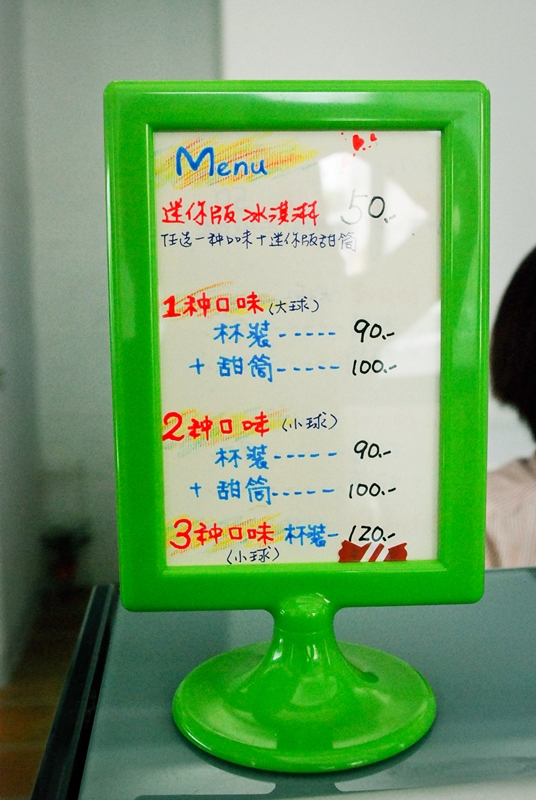 Menu
迷你版冰淇淋 50.-
任選一种口味+迷你版甜筒
1种口味(大球)
杯裝----- 90.-
+ 甜筒----- 100.-
2种口味 (小球)
杯裝----- 90.-
+ 甜筒----- 100.-
3种口味 杯裝- 120.-
(小球)